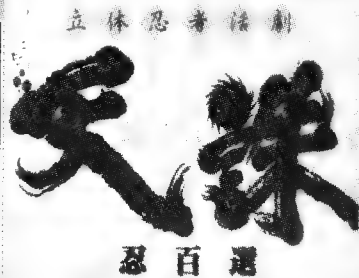 立体忍者活劇
天誅
忍百選